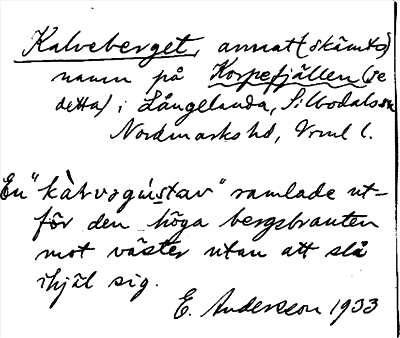 Kalveberget, annat (skämts)
namn på Korpefjällen (se
detta) i Långelanda, Sillbodals sn
Nordmarks hd, Vrml l.
En "kàlvogústav" ramlade ut-
för den höga bergsbranten
mot väster utan att slå
ihjäl sig.
E. Andersson 1933